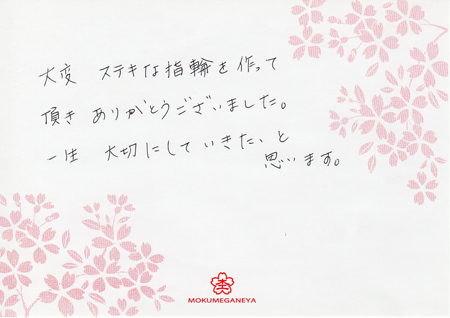 大変 ステキな指輪を作って
頂き ありがとうございました。
一生 大切にしていきたいと
思います。
MOKUMEGANEYA